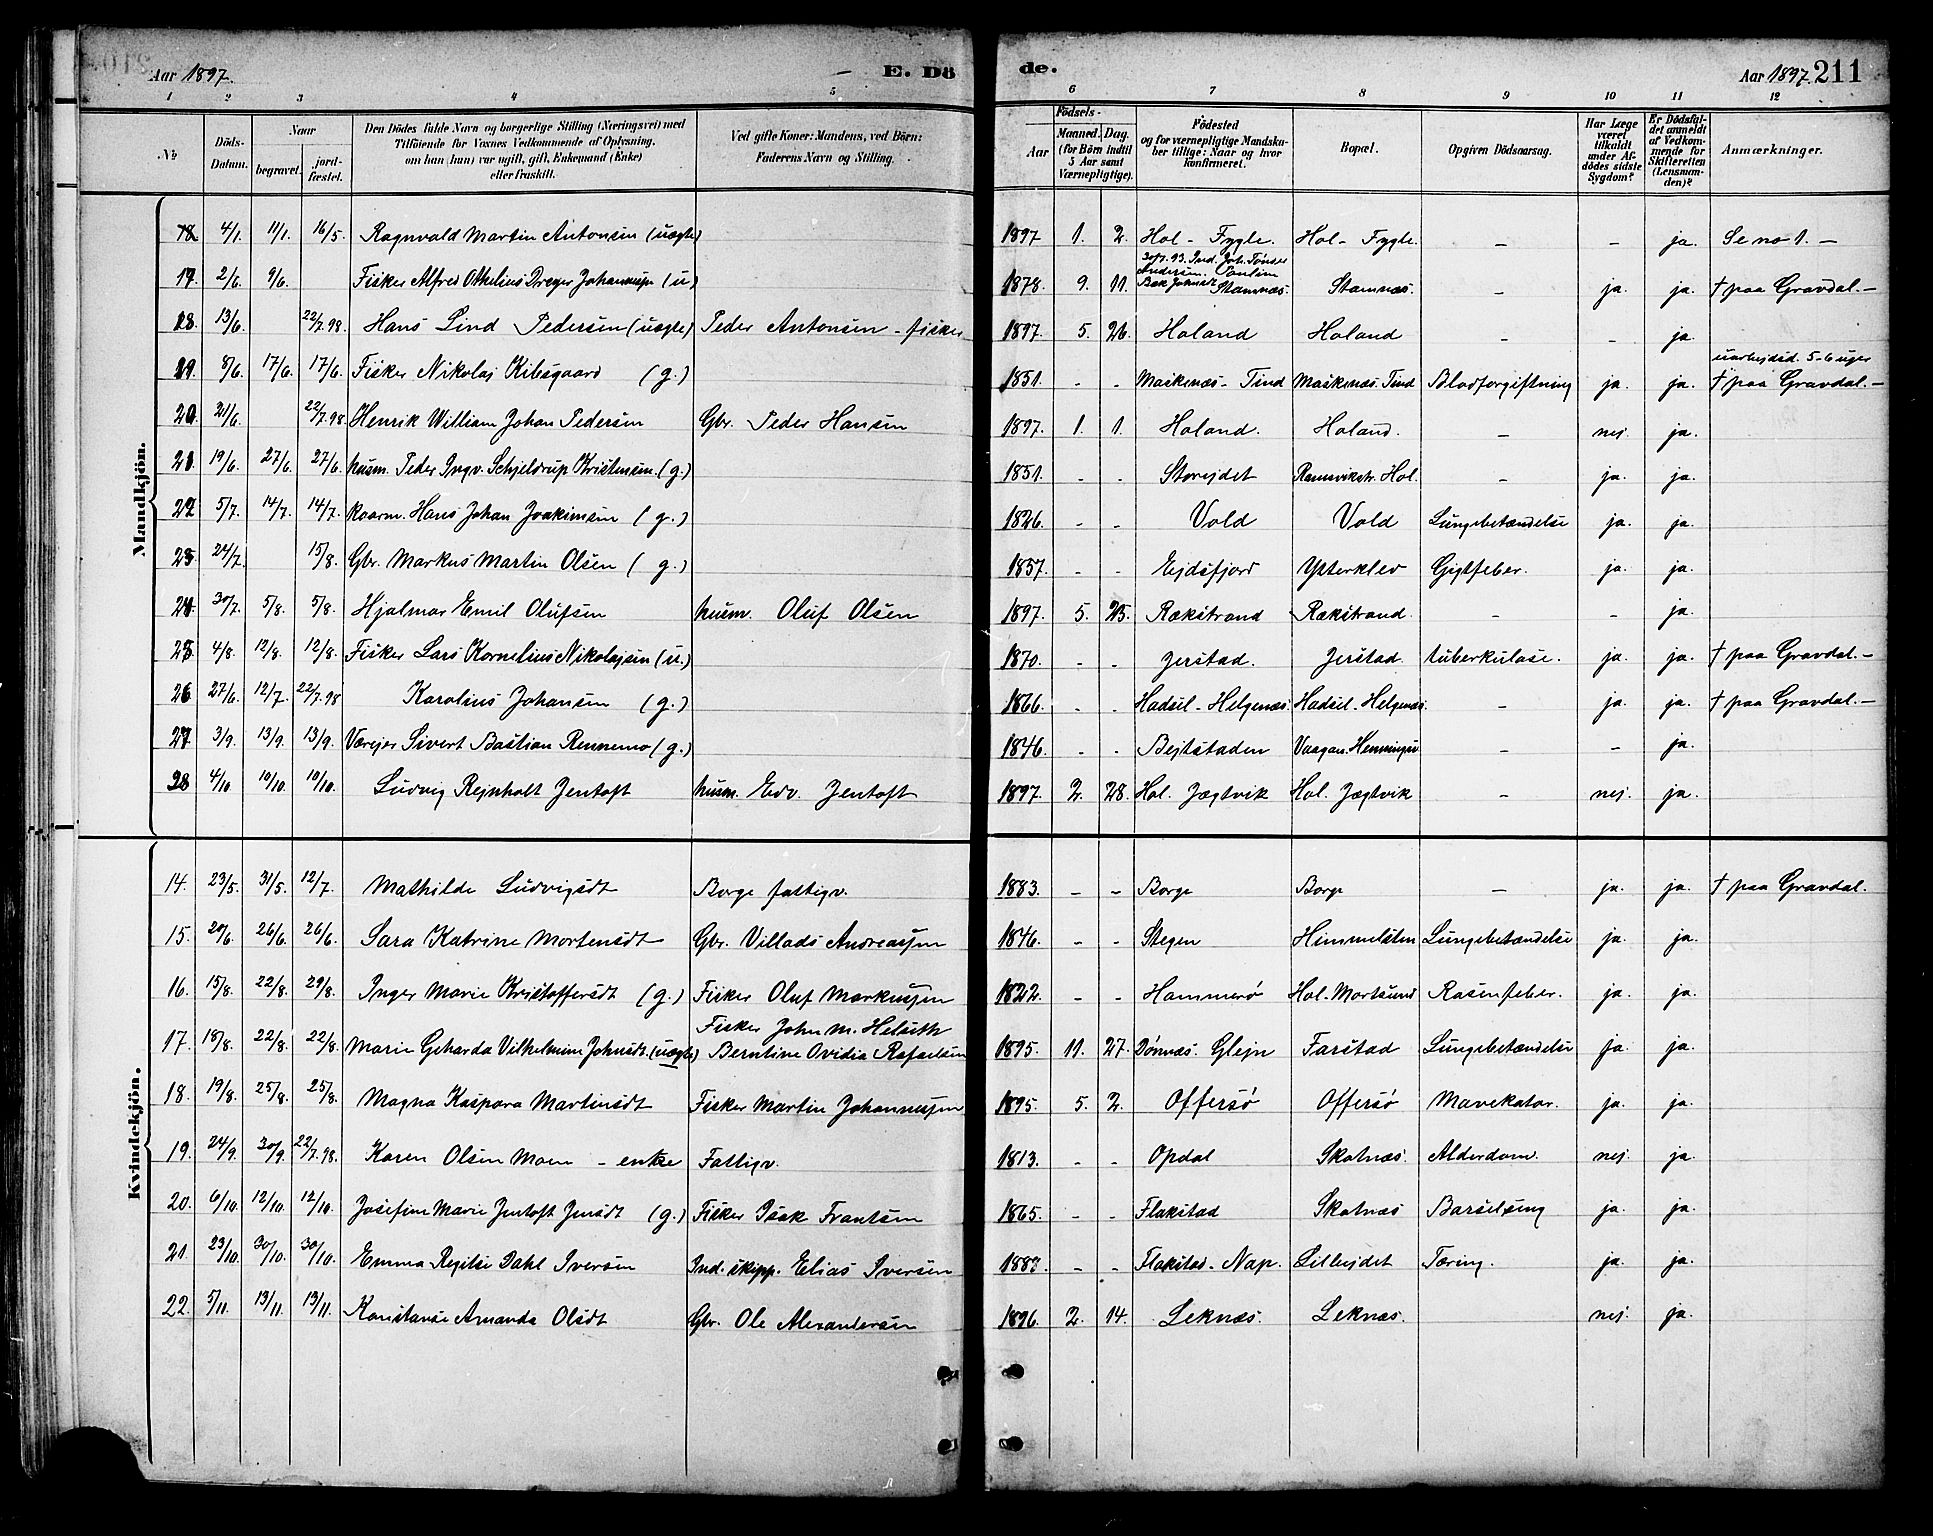 Aar 1897. E. Dö
1 2 3 4 5
No Döds-Datum. Naar begravet. jordfæstet. Den Dödes fulde Navn og borgerlige Stilling (Næringsvei) med Tilföiende for Voxnes Vedkommende af Oplysning, om han (hun) var ugift, gift, Enkemand (Enke) eller fraskilt. Ved gifte Koner: Mandens, ved Börn: Faderens Navn og Stilling.
de. Aar 1897. 211
6 7 8 9 10 11 12
Aar Födsels- Maaned. Dag. (for Börn indtil 5 Aar samt Værnepligtige). Födested og for værnepligtige Mandskaber tillige: Naar og hvor konfirmeret. Bopæl. Opgiven Dödsaarsag. Har Læge været tilkaldt under Afdödes sidste Sygdom? Er Dödsfaldet anmeldt af Vedkommende for Skifteretten (Lensmanden)? Anmærkninger.
Mandkjön.
18 4/1. 11/1. 16/5. Ragnvald Martin Antonsen (uægte) 1897 1. 2. Hol - Fygle. Hol - Fygle. - - ja. Se no 1. -
17. 2/6. 9/6. Fisker Alfred Othelius Dreyer Johannesen (u) 1878. 9. 11. Stamnæs. Stamnæs. - ja. ja. † paa Gravdal. -
18. 13/6. 22/7.98. Hans Lind Pedersen (uægte) Peder Antonsen - fisker 1897. 5. 26. Holand Holand - - ja.
19. 8/6. 17/6. 17/6. Fisker Nikolaj Kibsgaard (g.) 1851. - - Maskenæs - Tind Maskenæs. Tind Blodforgiftning ja. ja. uarbejdsd. 5-6 uger † paa Gravdal. -
20. 21/6. 22/7.98. Henrik William Johan Pedersen Gbr. Peder Hansen 1897. 1. 1. Holand. Holand. - nej. ja.
21. 19/6. 27/6. 27/6. husm. Peder Ingv. Schjeldrup Kristensen. (g.) 1851. - - Storejdet Ramsvikstr. Hol. - ja. ja.
22. 5/7. 14/7. 14/7. kaarm. Hans Johan Joakimsen (g.) 1826. - - Vold Vold Lungebetændelse ja. ja.
23. 24/7. 15/8. Gbr. Markus Martin Olsen (g.) 1857. - - Ejdsfjord Ytterklev Gigtfeber. ja. ja.
24. 30/7. 5/8. 5/8. Hjalmar Emil Olufsen husm. Oluf Olsen 1897. 5. 25. Rækstrand Rækstrand. - - ja.
25. 4/8. 12/8. 12/8. Fisker Lars Kornelius Nikolajsen (u.) 1870. - - Jerstad. Jerstad. tuberkulose. ja. ja. † paa Gravdal. -
26. 27/6. 12/7. 22/7.98 Karolius Johansen (g.) 1866. - - Hadsel - Helgenæs. Hadsel - Helgenæs. - ja. ja. † paa Gravdal. -
27. 3/9. 13/9. 13/9. Værejer Sivert Bastian Rennemo (g.) 1846. - - Bejtstaden Vaagan. Henningsv - - ja.
28 4/10 10/10. 10/10. Ludvig Rejnholt Jentoft husm. Edv. Jentoft 1897. 2. 28. Hol. Jægtvik Hol. Jægtvik - nej. ja.
Kvindekjön.
14. 23/5. 31/5. 12/7. Mathilde Ludvigsdt Borge fattigv. 1883. - - Borge Borge - ja. ja. † paa Gravdal.
15. 20/6. 26/6. 26/6. Sara Katrine Mortensdt Gbr. Villads Andreassen 1846. - - Stegen Himmelsten Lungebetændelse ja. ja.
16. 15/8. 22/8. 29/8. Inger Marie Kristoffersdt (g.) Fisker Oluf Markussen 1822. - - Hammerö Hol. Mortsund Rosenfeber. ja. ja.
17. 18/8. 22/8. 22/8. Marie Geharda Vilhelmine Johnsdt. (uægte) Fisker John M. Helseth Berntine Ovidia Rafaelsen 1895. 11. 27. Dønnæs. Glejn Farstad Lungebetændelse ja. ja.
18. 19/8. 25/8. 25/8. Magna Kaspara Martinsdt Fisker Martin Johannessen 1895. 5. 2. Offersö Offersö Mavekatar. ja. ja.
19. 24/9. 30/9. 22/7.98. Karen Olsen Moen - enke Fattigv. 1813. - - Opdal Skotnæs. Alderdom. nej. ja.
20. 6/10. 12/10. 12/10. Josefine Marie Jentoft Jensdt (g.) Fisker Isak Frantsen 1865. - - Flakstad Skotnæs Barselseng ja. ja.
21. 23/10. 30/10. 30/10. Emma Regitse Dahl Iversen Ind. skipp. Elias Iversen 1882. - - Flakstad - Nap. Lillejdet Tæring. ja. ja.
22. 5/11. 13/11. 13/11. Konstanse Amanda Olsdt Gbr. Ole Alexandersen 1896. 2. 14. Leknæs. Leknæs. nej. ja.